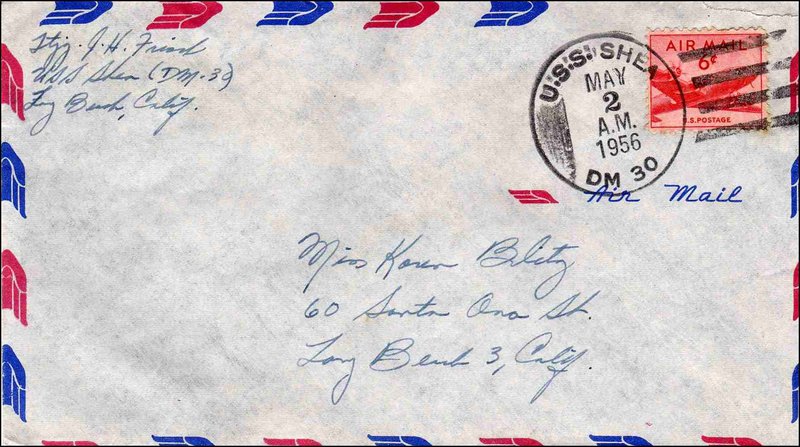 J. H. Friend
USS Shea (DM-30)
Long Beach, Calif.
U.S.S. SHEA
MAY
2
A.M.
1956
DM 30
AIR MAIL
6¢
U.S. POSTAGE
Air Mail
Miss Karen
60 Santa Ana St.
Long Beach 3, Calif.